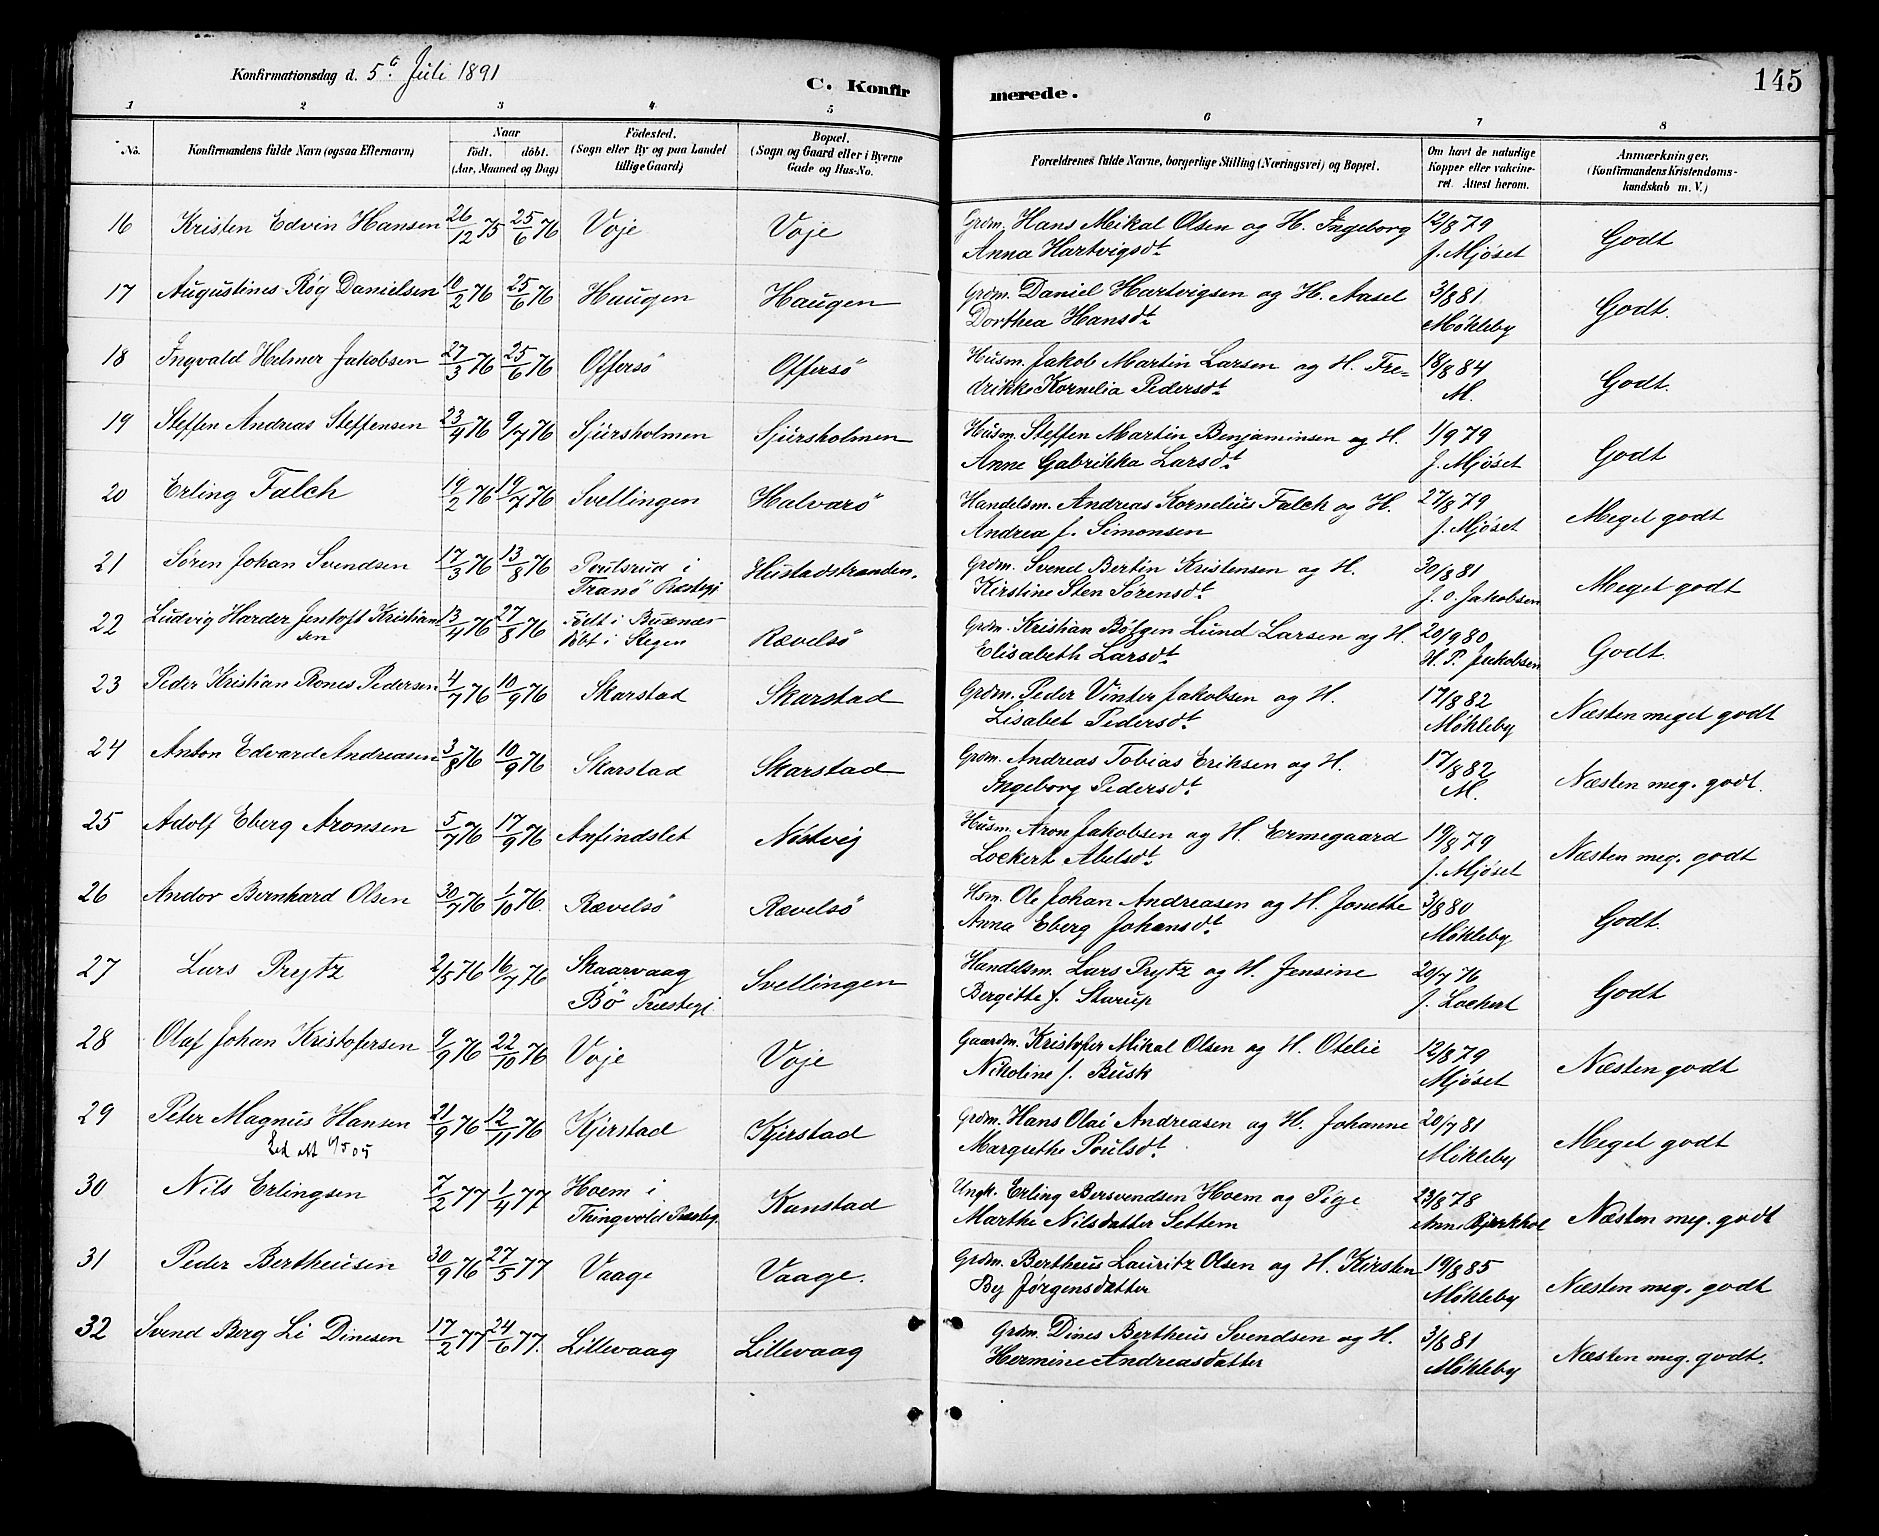 Konfirmationsdag d. 5te Juli 1891
C. Konfirmerede.
145
1 2 3 4 5 6 7 8
No. Konfirmandens fulde Navn (ogsaa Efternavn) Naar født. døbt. (Aar, Maaned og Dag) Födested. (Sogn eller By og paa Landet tillige Gaard) Bopæl. (Sogn og Gaard eller i Byerne Gade og Hus-No. Forældrenes fulde Navne, borgerlige Stilling (Næringsvei) og Bopæl. Om havt de naturlige Kopper eller vakcineret. Attest herom. Anmærkninger. (Konfirmandens Kristendomskundskab m. V.)
16 Kristen Edvin Hansen 26/12 75 25/6 76 Voje Voje Grdm. Hans Mikal Olsen og H. Ingeborg Anna Hartvigsdt. 12/8 79 J. Mjöset Godt
17 Augustines Røg Danielsen 10/2 76 25/6 76 Haugen Haugen Grdm. Daniel Hartvigsen og H. Aasel Dorthea Hansdt. 3/8 81. Møkleby Godt.
18 Ingvald Helmer Jakobsen 27/3 76 25/6 76 Offersö Offersö Husm. Jakob Martin Larsen og H. Fredrikke Kornelia Pedersdt. 18/8 84 M. Godt.
19 Steffen Andreas Steffensen 23/4 76 9/7 76 Sjursholmen Sjursholmen Husm. Steffen Martin Benjaminsen og H. Anne Gabrikka Larsdt. 1/9 79 J. Mjöset Godt
20 Erling Falch 19/2 76 19/7 76 Svellingen Halvarö Handelsm. Andreas Kornelius Falch og H. Andrea f. Simonsen 27/8 79 J. Mjöset Meget godt
21 Sören Johan Svendsen 17/3 76 13/8 76 Poulsrud i Tranö Præstegj. Hustadstranden. Grdm. Svend Bertin Kristensen og H. Kirstine Sten Sörensdt. 30/8 81 J. O. Jakobsen Meget godt
22 Ludvig Harder Jentoft Kristiansen 13/4 76 27/8 76 Födt i Buxnæs döbt i Stegen Rævelsö Grdm. Kristian Lund Larsen og H. Elisabeth Larsdt. 20/9 80 H. P. Jakobsen Godt.
23 Peder Kristian Rones Pedersen 4/7 76 10/9 76 Skarstad Skarstad Grdm. Peder Vinter Jakobsen og H. Lisabet Pedersdt. 17/8 82 Møkleby Næsten meget godt
24 Anton Edvard Andreasen 3/8 76 10/9 76 Skarstad Skarstad Grdm. Andreas Tobias Eriksen og H. Ingeborg Pedersdt. 17/8 82 M. Næsten meg. godt.
25 Adolf Eberg Aronsen 5/7 76 17/9 76 Anfindslet Nöstvig Husm. Aron Jakobsen og H. Ermegaard Lockert Abelsdt. 19/8 79 J. Mjöset Næsten meg. godt
26 Andor Bernhard Olsen 30/7 76 1/10 76. Rævelsö Rævelsö Hsm. Ole Johan Andreasen og H. Jonette Anna Eberg Johansdt. 3/8 80 Møkleby Godt.
27 Lars Prytz 2/5 76 16/7 76 Skaarvaag Bö Præstegj. Svellingen Handelsm. Lars Prytz og H. Jensine Bergitte f. Starup 20/7 76 J. Lockert Godt
28 Olaf Johan Kristofersen 9/9 76 22/10 76 Voje Voje Gaardm. Kristofer Mikal Olsen og H. Otelie Nikoline f. Busk 12/8 79 Mjöset Næsten godt
29 Peter Magnus Hansen 21/9 76 12/11 76 Kjerstad Kjerstad Grdm. Hans Olai Andreasen og H. Johanne Margrethe Poulsdt. 20/7 81 Møkleby Meget godt
30 Nils Erlingsen 7/2 77 1/4 77 Hoem i Thingvold Præstegj. Kanstad Ungk. Erling Bersvendsen Hoem og Pige Marthe Nilsdatter Settem 23/8 78 Næsten meg. godt
31 Peder Bertheusen 30/9 76 27/5 77 Vaage Vaage. Grdm. Bertheus Lauritz Olsen og H. Kirsten By Jørgensdatter 19/8 85 Møkleby Næsten meg. godt
32 Svend Berg Li Dinesen 17/2 77 24/6 77. Lillevaag Lillevaag Grdm. Dines Bertheus Svendsen og H. Hermine Andreasdatter 3/8 81 Møkleby Næsten meg. godt.